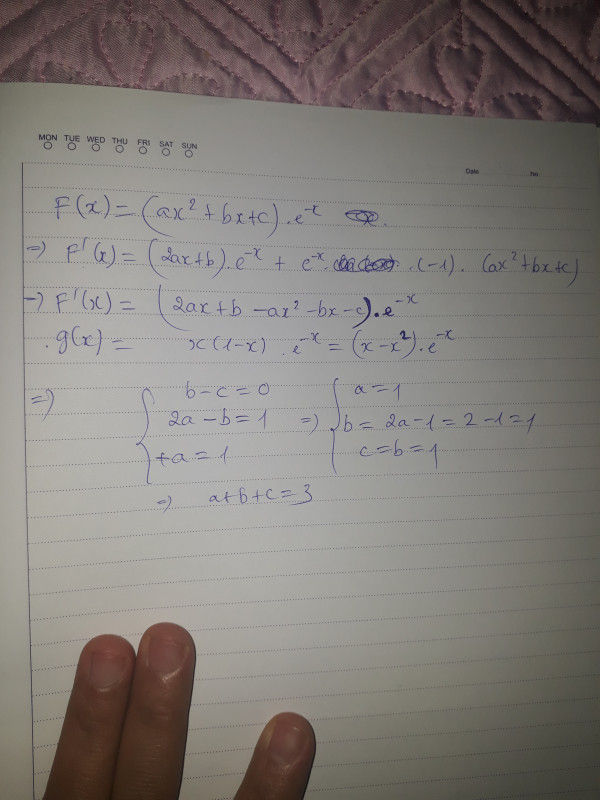 MON TUE WED THU FRI SAT SUN
Date No
F(x) = (ax² + bx + c).e⁻ˣ
=) F'(x) = (2ax+b).e⁻ˣ + e⁻ˣ. .(-1). (ax²+bx+c)
=) F'(x) = (2ax + b - ax² - bx - c).e⁻ˣ
.g(x) = x(1-x) .e⁻ˣ = (x-x²).e⁻ˣ
=) { b-c=0 { a=1
2a-b=1 =) b= 2a-1=2-1=1
+a=1 c=b=1
=) a+b+c=3